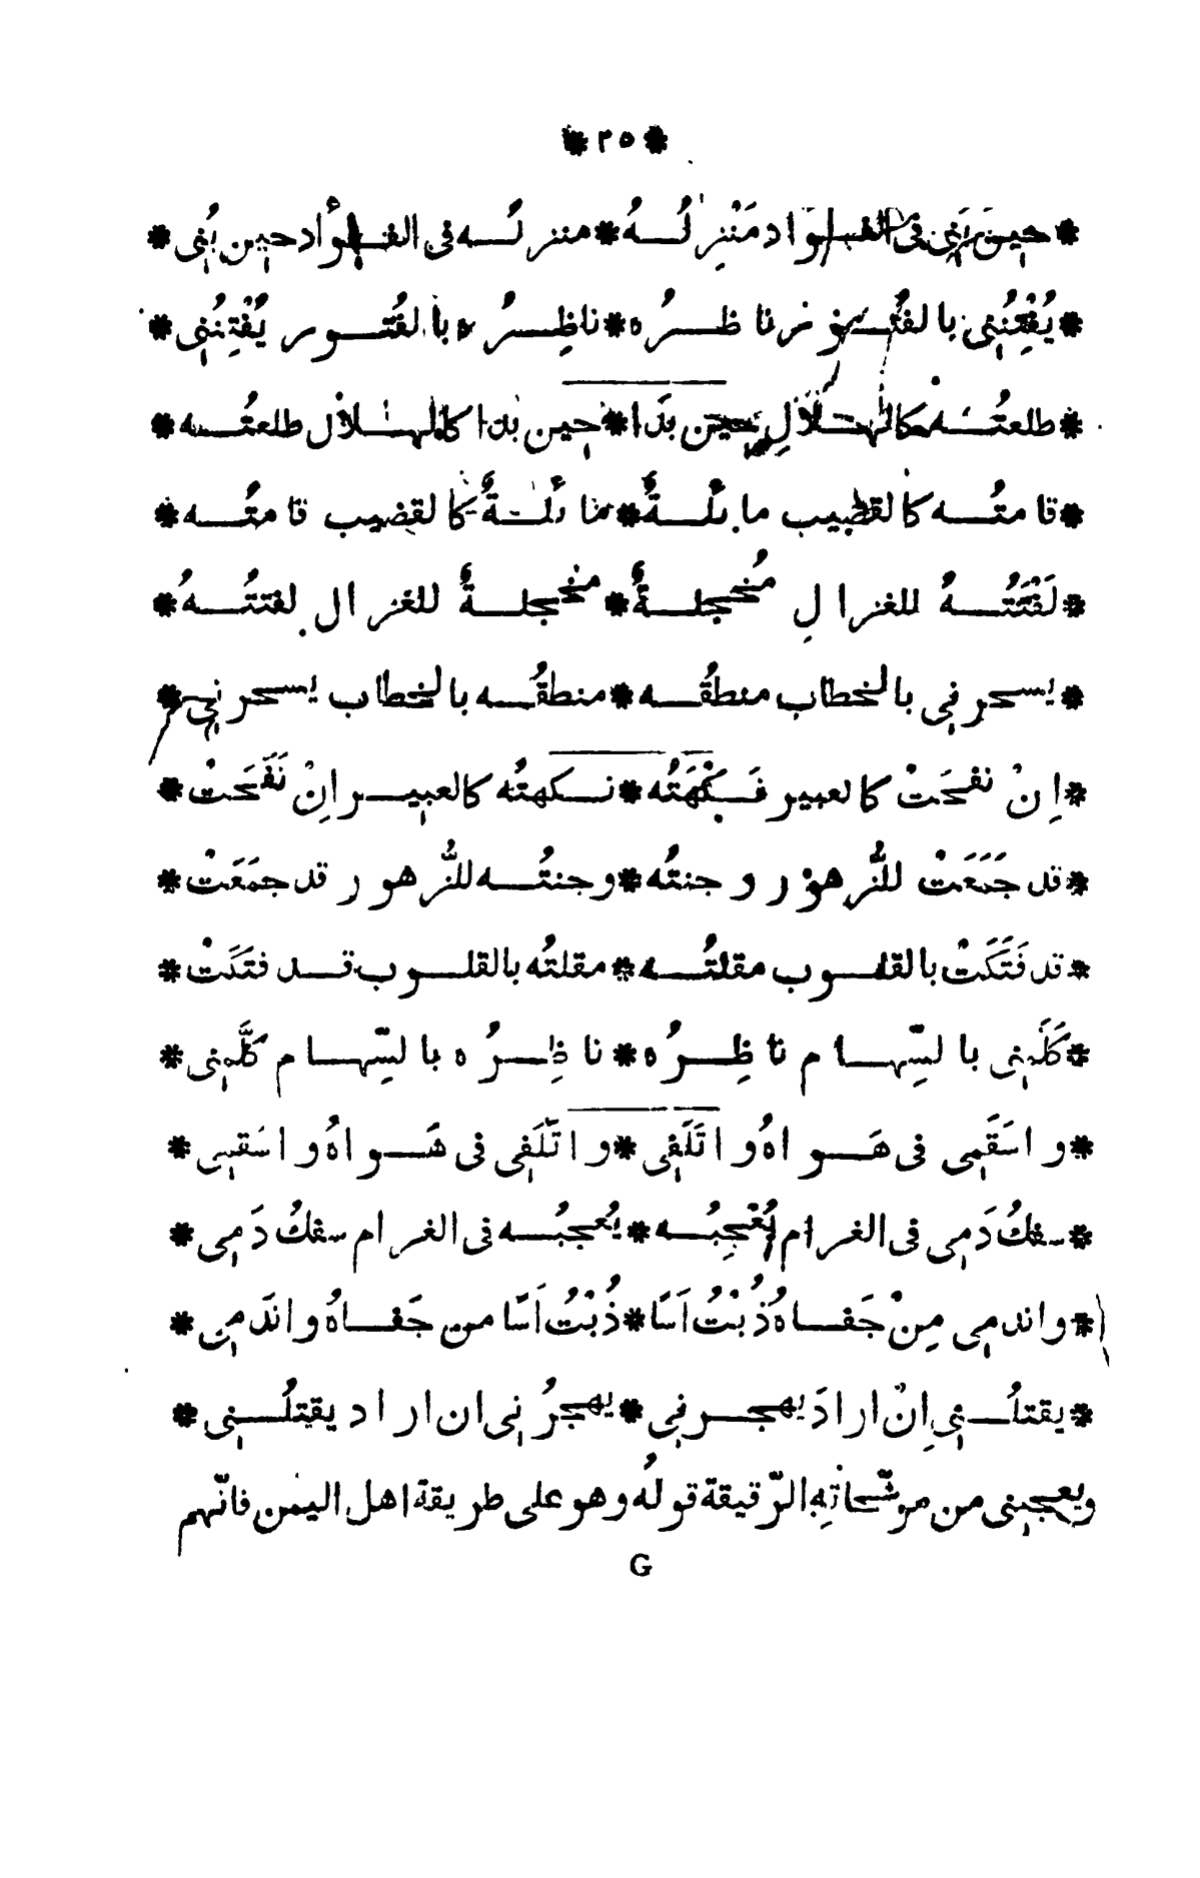 * ٢٥ *
* حين بَنَى فى الفؤاد مَنْزِلُهُ * منزلُه فى الفؤاد حين بُنى *
* يُفْتِنُنِى بالفُتور ناظرُه * ناظِرُه بالفُتور يُفْتِنُنِى *
* طلعتُه كالهلالِ حين بَدَا * حين بَدَا كالهلال طلعتُه *
* قامتُه كالقضيب مائلةٌ * مائلةٌ كالقضيب قامتُه *
* لَفْتَتُهُ للغزالِ مُخجلةٌ * مخجلةٌ للغزال لفتتُهُ *
* يسحرنى بالخطاب منطقُه * منطقُه بالخطاب يسحرنى *
* اِنْ نفحَتْ كالعبير نَكْهَتُه * نكهتُه كالعبير اِنْ نَفَحَتْ *
* قد جَمَعَتْ للزُّهور وجنتُه * وجنتُه للزُّهور قد جمَعَتْ *
* قد فَتَكَتْ بالقلوب مقلتُه * مقلتُه بالقلوب قد فتَكَتْ *
* كَلَّمنِى بالسِّهام ناظِرُه * ناظِرُه بالسِّهام كلَّمنِى *
* واسَقَمِى فى هَواهُ واتَلَفِى * واتَلَفِى فى هَواهُ واسَقمِى *
* سفكُ دَمِى فى الغرام يُعْجِبُه * يُعجبُه فى الغرام سفكُ دَمِى *
* واندمِى مِنْ جَفاهُ ذُبْتُ اَسًا * ذُبْتُ اَسًا من جَفاهُ واندَمِى *
* يقتلُنِى اِنْ ارادَ يهجرنِى * يهجرُنِى ان اراد يقتلُنِى *
ويعجبنى من موشّحاتِه الرّقيقة قولُه وهو على طريقة اهل اليمن فانّهم
G